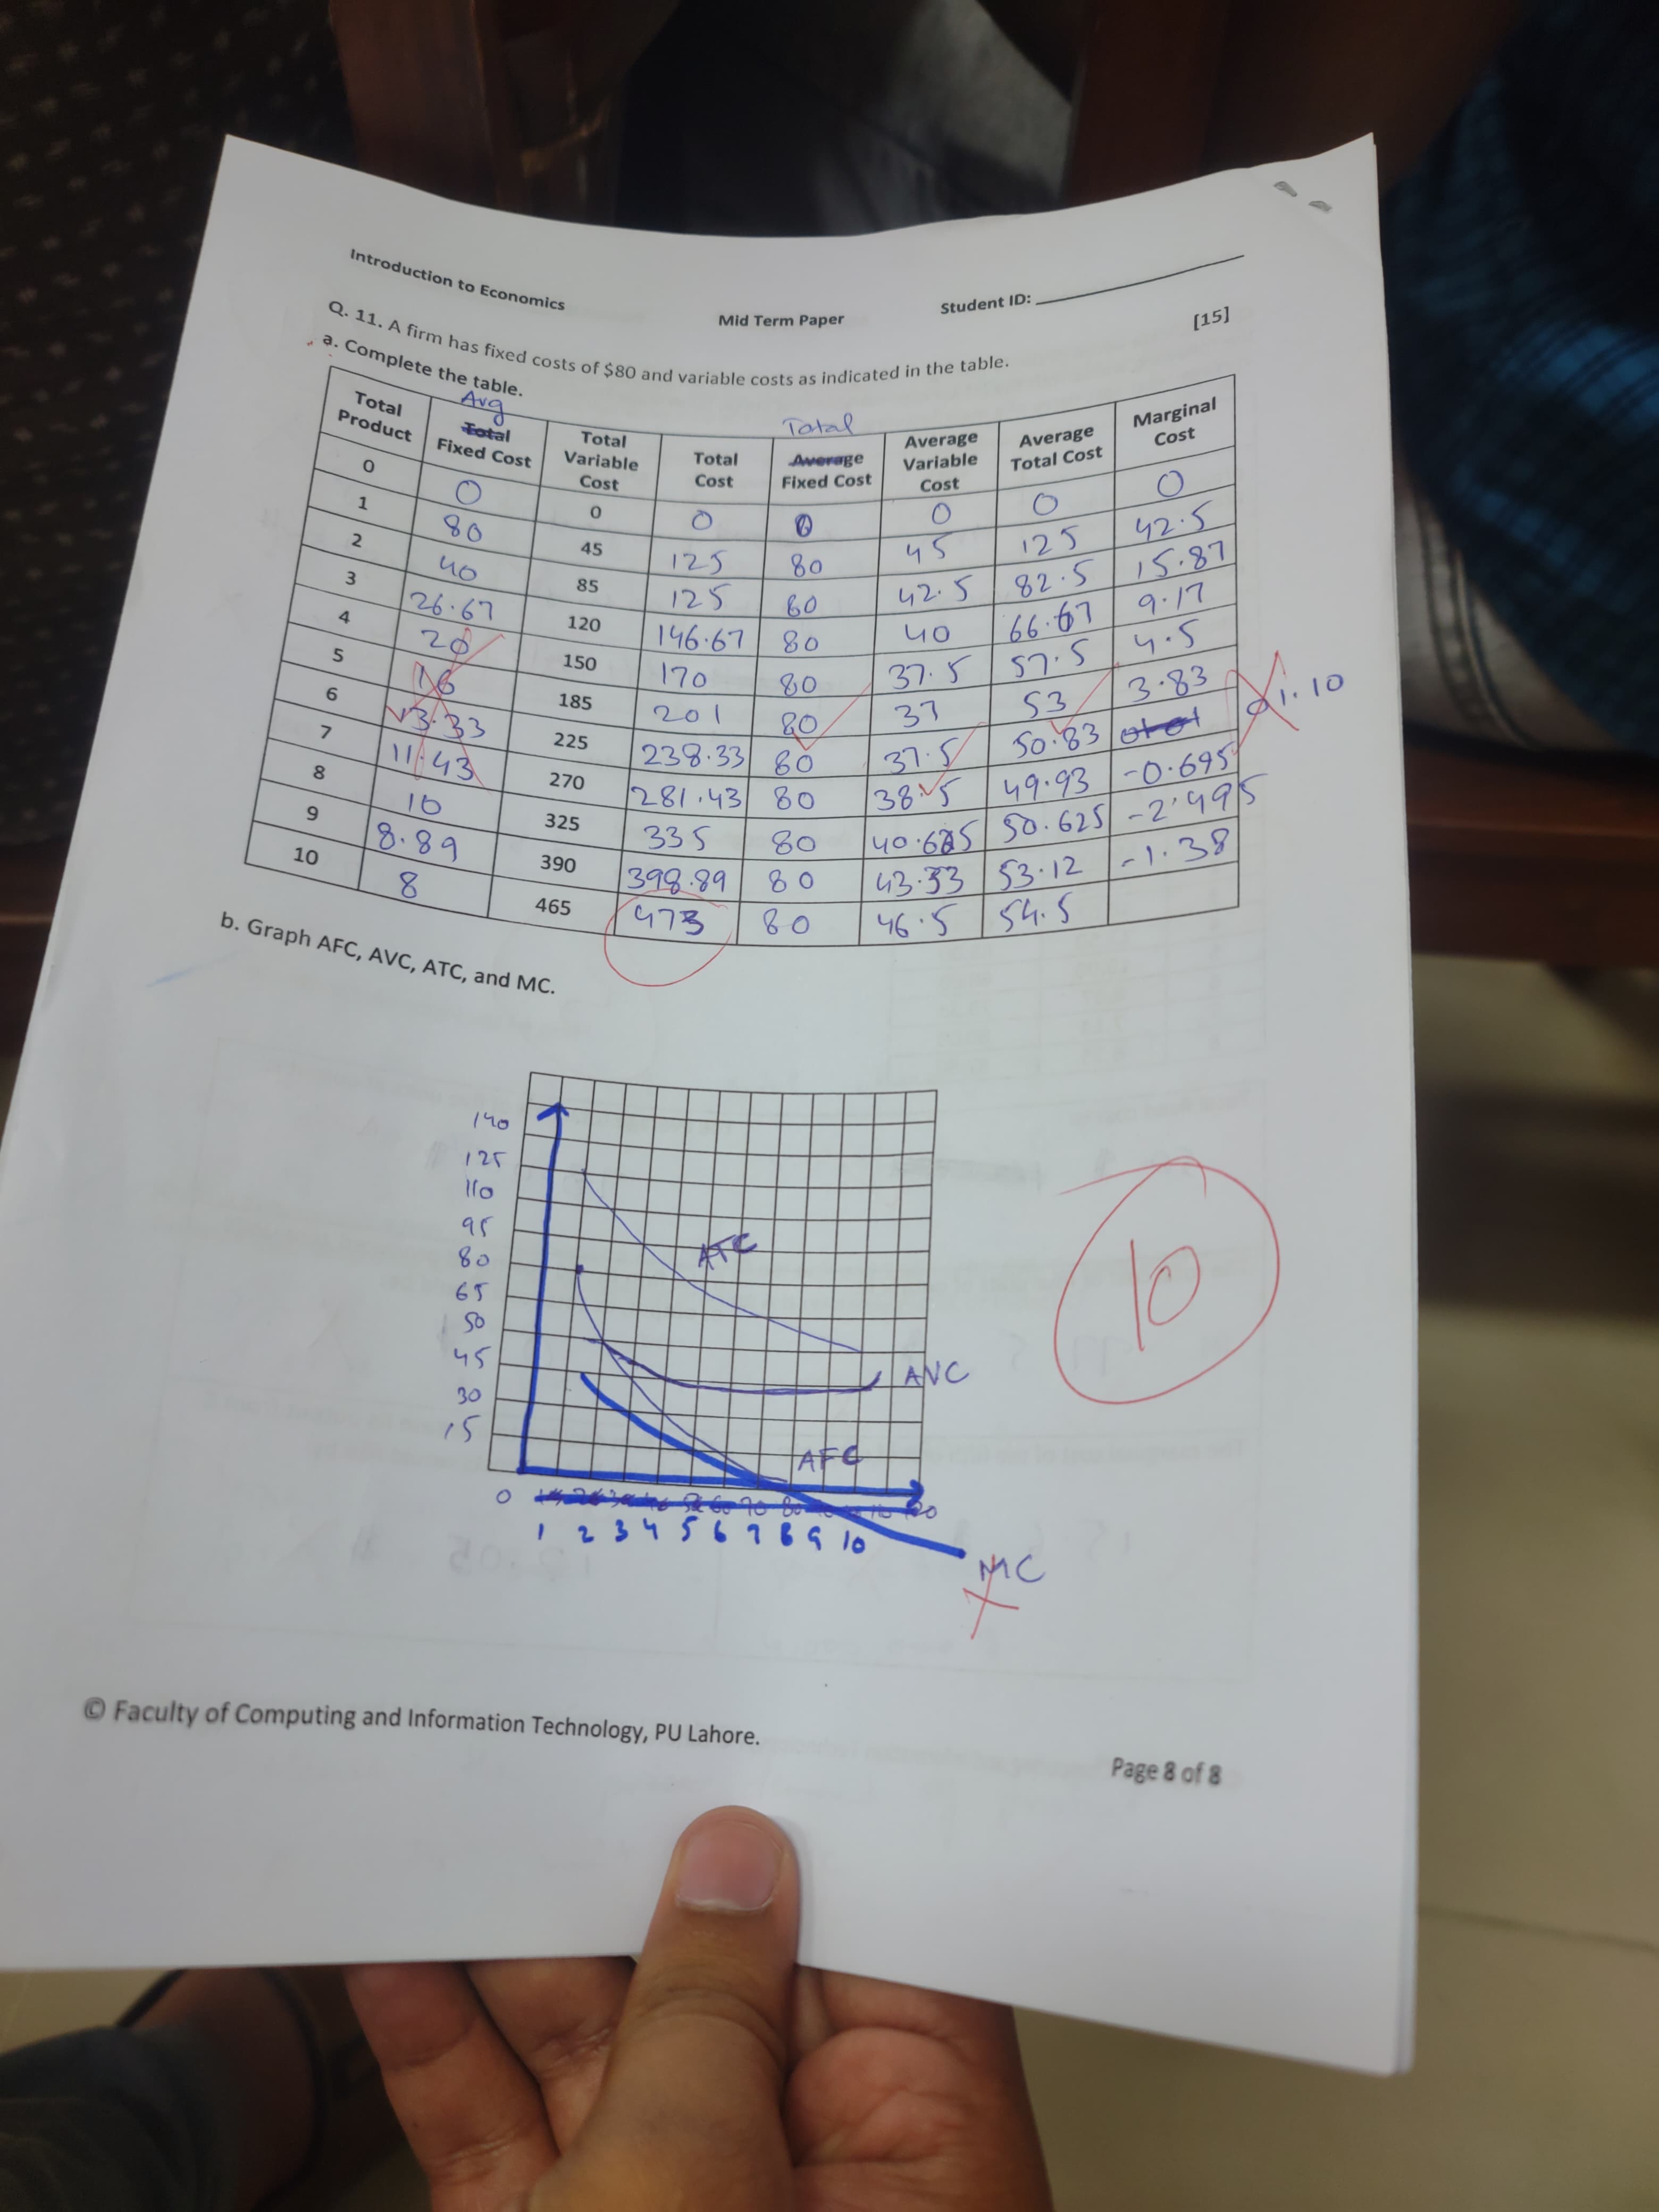 Introduction to Economics
Mid Term Paper
Student ID:
Q. 11. A firm has fixed costs of $80 and variable costs as indicated in the table.
[15]
a. Complete the table.
Total Product | Avg Total Fixed Cost | Total Variable Cost | Total Cost | Total Average Fixed Cost | Average Variable Cost | Average Total Cost | Marginal Cost
0 | 0 | 0 | 0 | 0 | 0 | 0 | 0
1 | 80 | 45 | 125 | 80 | 45 | 125 | 42.5
2 | 40 | 85 | 125 | 80 | 42.5 | 82.5 | 15.87
3 | 26.67 | 120 | 146.67 | 80 | 40 | 66.67 | 9.17
4 | 20 | 150 | 170 | 80 | 37.5 | 57.5 | 4.5
5 | 16 | 185 | 201 | 80 | 37 | 53 | 3.83
6 | 13.33 | 225 | 238.33 | 80 | 37.5 | 50.83 | 1.10
7 | 11.43 | 270 | 281.43 | 80 | 38.5 | 49.93 | -0.695
8 | 10 | 325 | 335 | 80 | 40.625 | 50.625 | -2.495
9 | 8.89 | 390 | 398.89 | 80 | 43.33 | 53.12 | -1.38
10 | 8 | 465 | 473 | 80 | 46.5 | 54.5
b. Graph AFC, AVC, ATC, and MC.
140
125
110
95
80
65
50
45
30
15
ATC
AVC
AFC
10
0
1 2 3 4 5 6 7 8 9 10
MC
© Faculty of Computing and Information Technology, PU Lahore.
Page 8 of 8